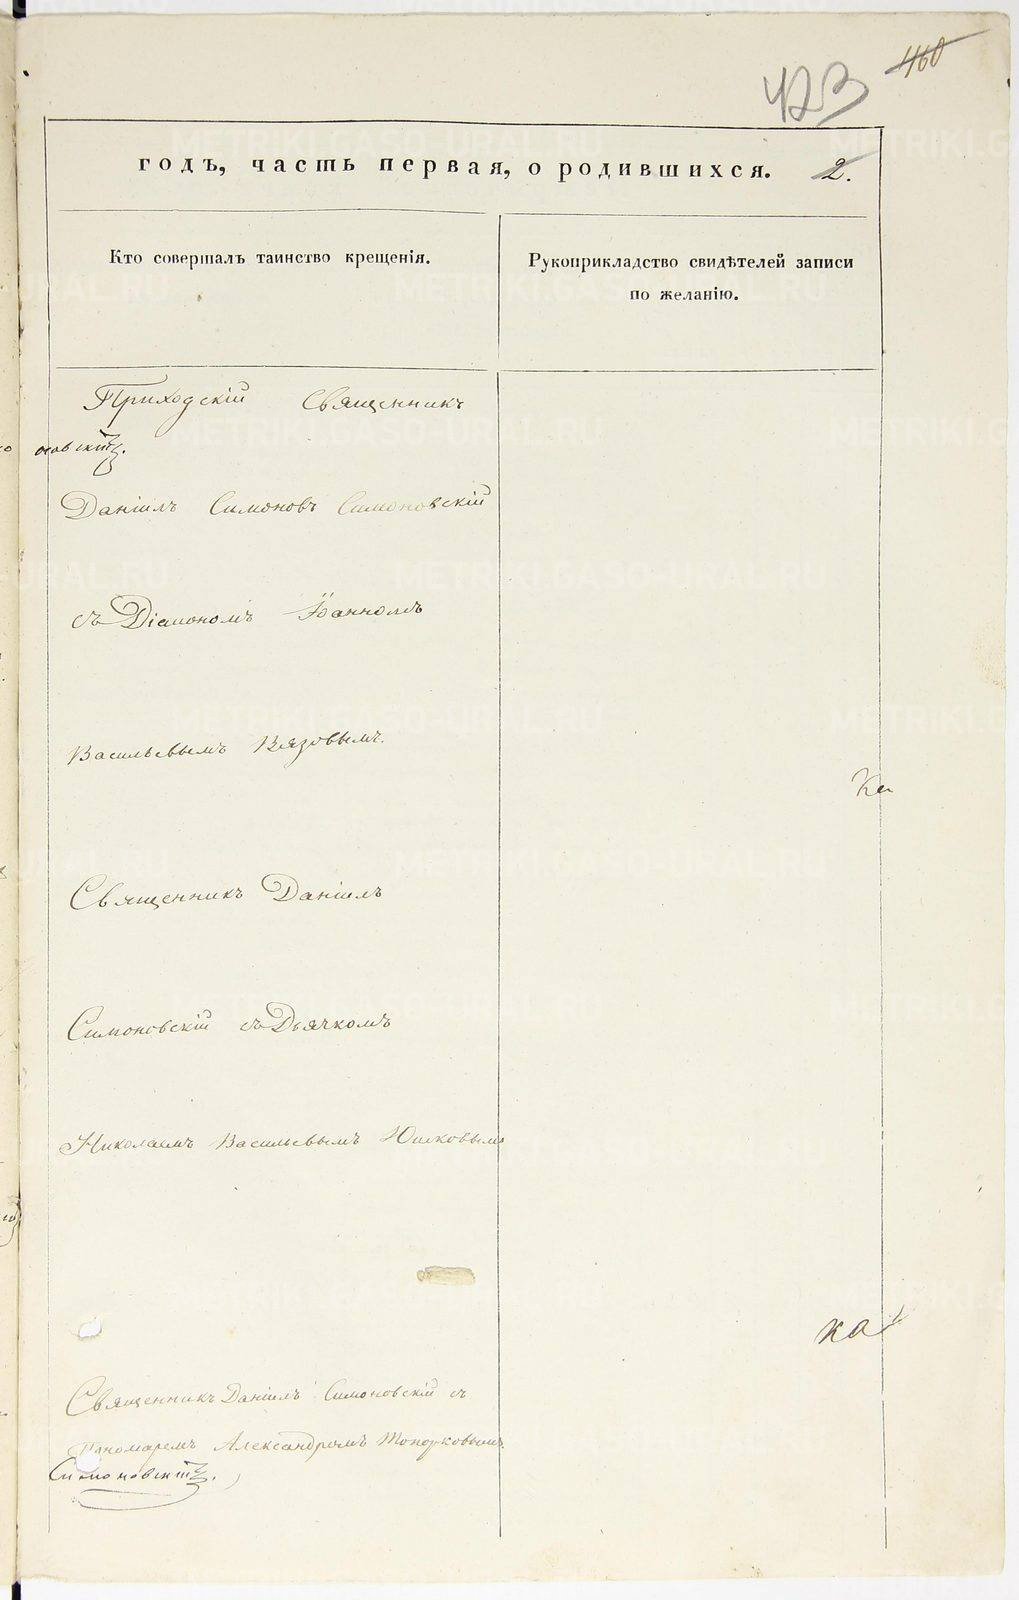 460
423
годъ, часть первая, о родившихся. 2.
Кто совершалъ таинство крещенія.
Рукоприкладство свидѣтелей записи
по желанію.
Приходскій Священникъ
Даніилъ Симоновъ Симоновскій
съ Діакономъ Іоанномъ
Васильевымъ Вязовымъ.
Ка
Священникъ Даніилъ
Симоновскій съ Дьячкомъ
Николаемъ Васильевымъ Юшковымъ
ка
Священникъ Даніилъ Симоновскій съ
Пономаремъ Александромъ Топорковымъ
Симоновскій.
METRIKI.GASO-URAL.RU